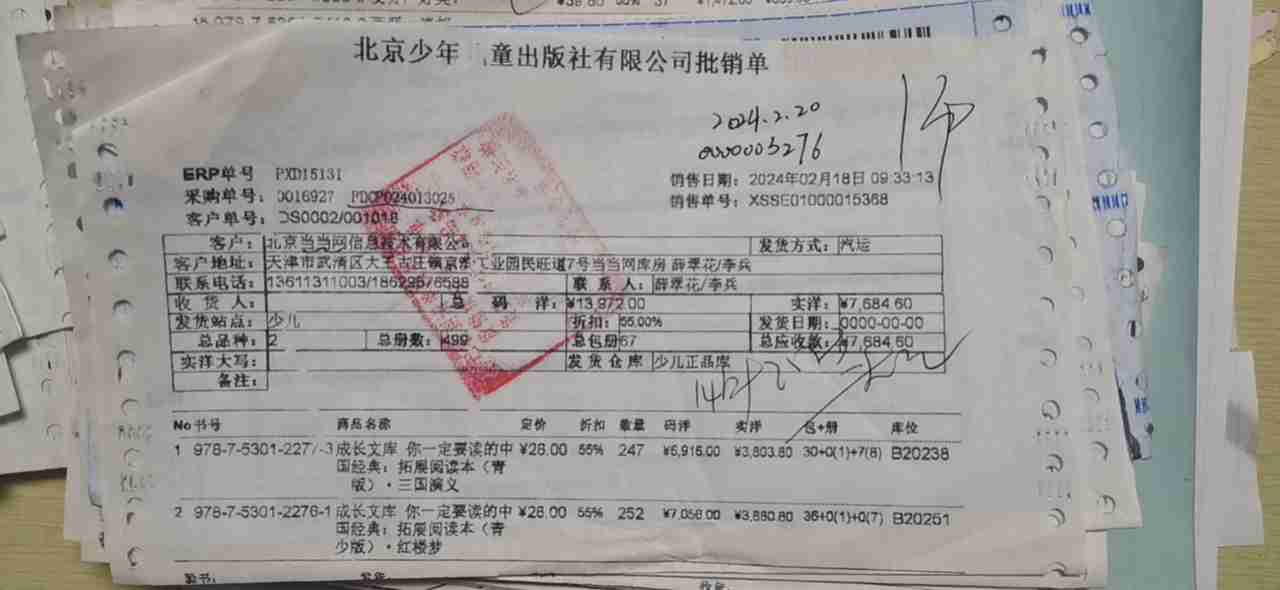 北京少年 童出版社有限公司批销单
2024.2.20
0000003276
ERP单号 PXD15131
销售日期：2024年02月18日 09:33:13
采购单号：0016927 PDCP024013025
销售单号：XSSE01000015368
客户单号：DS0002/001018
客户：北京当当网信息技术有限公司 发货方式：汽运
客户地址：天津市武清区大王古庄镇京滨工业园民旺道7号当当网库房 薛翠花/李兵
联系电话：13611311003/18629576588 联系人：薛翠花/李兵
收货人： 总码洋：¥13,972.00 实洋：¥7,684.60
发货站点：少儿 折扣：55.00% 发货日期：0000-00-00
总品种：2 总册数：499 总包册67 总应收款：¥7,684.60
实洋大写： 发货仓库 少儿正品库
备注：
No 书号 商品名称 定价 折扣 数量 码洋 实洋 包+册 库位
1 978-7-5301-2277-3 成长文库 你一定要读的中 ¥28.00 55% 247 ¥6,916.00 ¥3,803.80 30+0(1)+7(8) B20238
国经典：拓展阅读本（青
版）·三国演义
2 978-7-5301-2276-1 成长文库 你一定要读的中 ¥28.00 55% 252 ¥7,056.00 ¥3,880.80 36+0(1)+0(7) B20251
国经典：拓展阅读本（青
少版）·红楼梦